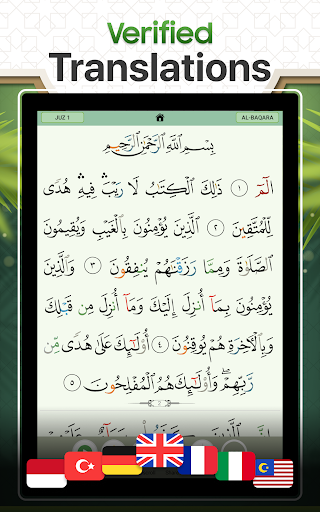 Verified
Translations
JUZ 1
AL-BAQARA
بِسْمِ ٱللَّهِ ٱلرَّحْمَٰنِ ٱلرَّحِيمِ
الٓمٓ ١ ذَٰلِكَ ٱلْكِتَٰبُ لَا رَيْبَۛ فِيهِۛ هُدًى
لِّلْمُتَّقِينَ ٢ ٱلَّذِينَ يُؤْمِنُونَ بِٱلْغَيْبِ وَيُقِيمُونَ
ٱلصَّلَوٰةَ وَمِمَّا رَزَقْنَٰهُمْ يُنفِقُونَ ٣ وَٱلَّذِينَ
يُؤْمِنُونَ بِمَآ أُنزِلَ إِلَيْكَ وَمَآ أُنزِلَ مِن قَبْلِكَ
وَبِٱلْءَاخِرَةِ هُمْ يُوقِنُونَ ٤ أُو۟لَٰٓئِكَ عَلَىٰ هُدًى مِّن
رَّبِّهِمْ وَأُو۟لَٰٓئِكَ هُمُ ٱلْمُفْلِحُونَ ٥
2